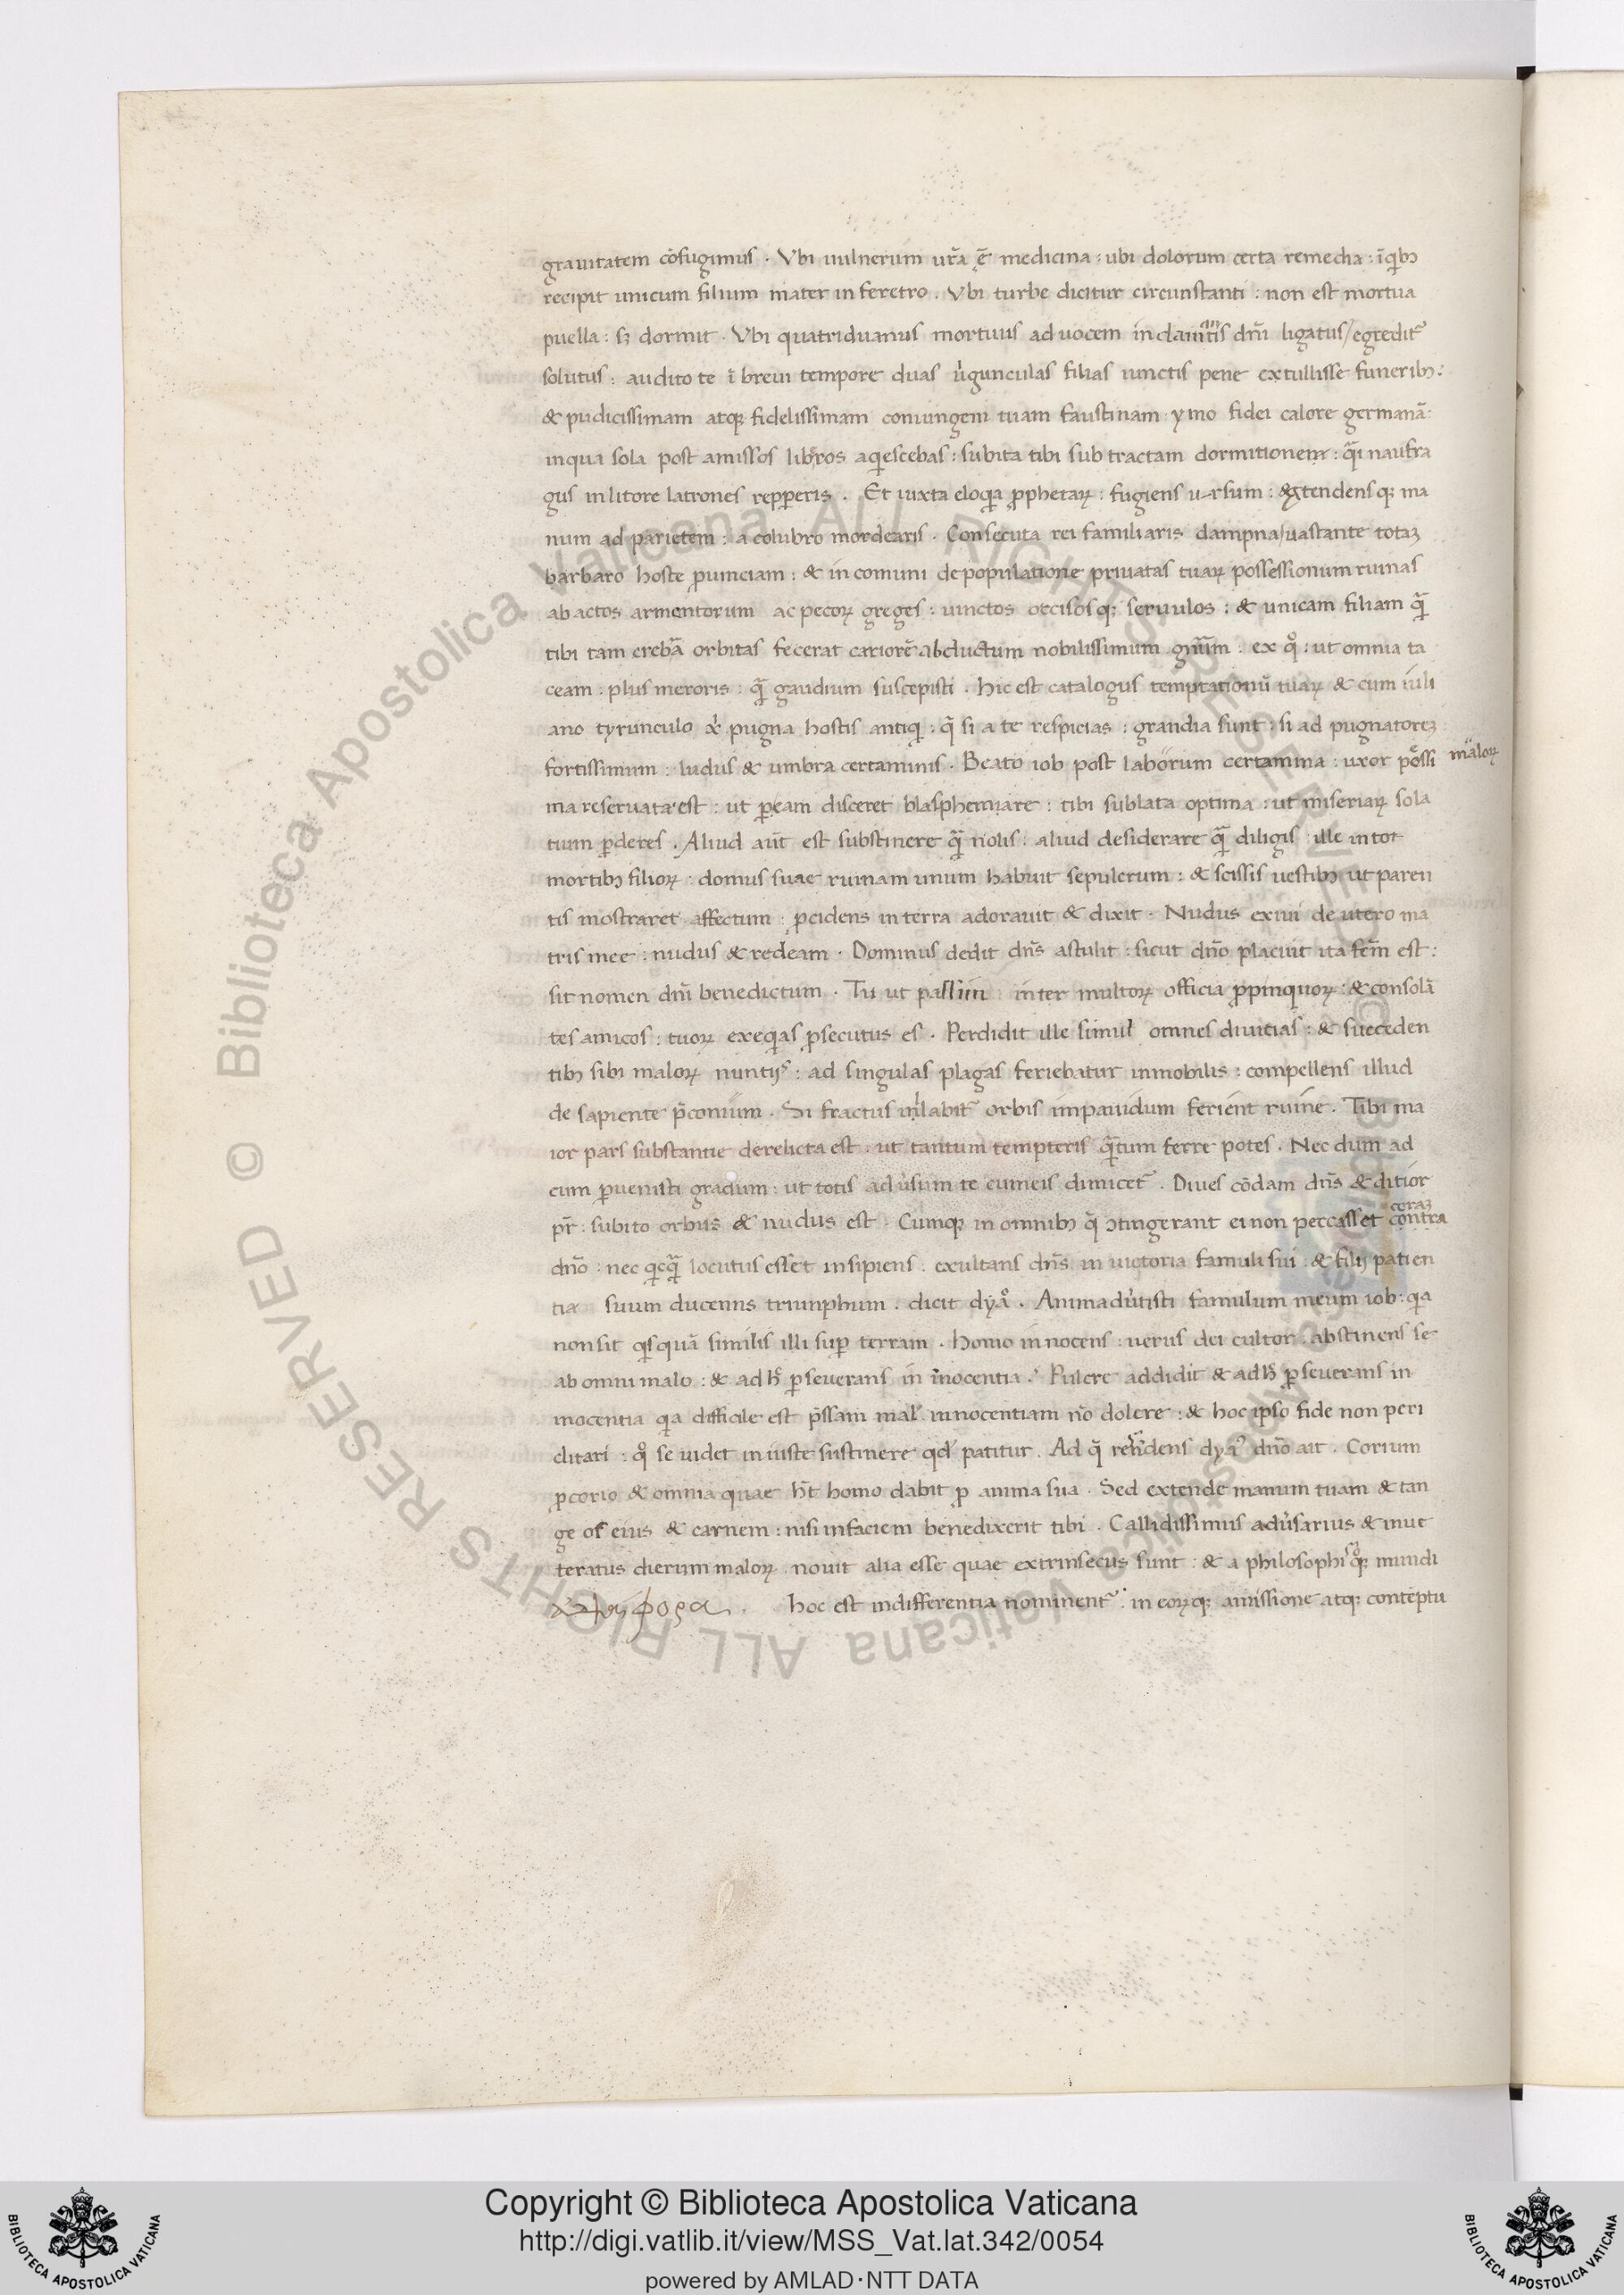 grauitatem cōfugimus . Vbi uulnerum ur̄a ē medicina : ubi dolorum certa remedia : īqbꝫ
recipit unicum filium mater in feretro . Vbi turbe dicitur circunstanti : non est mortua
puella : sꝫ dormit . Vbi quatriduanus mortuus ad uocem in clamātis dn̄i ligatus / egredit᷑
solutus : audito te ī breui tempore duas u̓gunculas filias iunctis pene extullisse funeribꝫ :
& pudicissimam atqꝫ fidelissimam coniungem tuam faustinam ymo fidei calore germanā :
inqua sola post amissos liberos aqescebas : subita tibi sub tractam dormitionem : qͣi naufra
gus in litore latrones repperis . Et iuxta eloqa ꝓphetaꝝ : fugiens ursum : extendensqꝫ ma
num ad parietem : a colubro mordearis . Consecuta rei familiaris dampna / uastante totaꝫ
barbaro hoste ꝓuinciam : & in comuni depopulatione priuatas tuaꝝ possessionum ruinas
ab actos armentorum ac pecoꝝ greges : uinctos occisosqꝫ seruulos : & unicam filiam qͣ̄
tibi tam crebā orbitas fecerat cariorē abductum nobilissimum gn̄um . ex qͦ : ut omnia ta
ceam . plus meroris : qͣ̄ gaudium suscepisti . hic est catalogus temptationū tuaꝝ & cum iuli
ano tyrunculo xͥ pugna hostis antiq : q̄ si a te respicias : grandia sunt : si ad pugnatoreꝫ
fortissimum : ludus & umbra certaminis . Beato iob post laborum certamina : uxor possi maloꝝ
ma reseruata est : ut ꝑeam disceret blasphemare : tibi sublata optima : ut miseriaꝝ sola
tium ꝑderes . Aliud aut̄ est substinere qͣ̄ nolis : aliud desiderare qͣ̄ diligis ille in tot
mortibꝫ filioꝝ : domus suae ruinam unum habuit sepulcrum : & scissis uestibꝫ ut paren
tis mostraret affectum : ꝓcidens in terra adorauit & dixit . Nudus exiui de utero ma
tris mee : nudus & redeam . Dominus dedit dn̄s astulit : sicut dn̄o placuit ita fem̄ est :
sit nomen dn̄i benedictum . Tu ut passim inter multoꝝ officia ꝓpinquoꝝ : & consolā
tes amicos : tuoꝝ exeqas ꝓsecutus es . Perdidit ille simul omnes diuitias : & succeden
tibꝫ sibi maloꝝ nuntijs : ad singulas plagas feriebatur inmobilis : compellens illud
de sapiente p̄conium . Si fractus illabit᷑ orbis impauidum ferient ruine . Tibi ma
ior pars substantie derelicta est . ut tantum tempteris qͣ̄tum ferre potes . Nec dum ad
eum ꝑuenisti gradum : ut totis adu̓sum te cuneis dimicet᷑ . Diues cōdam dn̄s & ditior
pr̄ : subito orbus & nudus est . Cumqꝫ in omnibꝫ q̄ ↄtingerant ei non peccasset contra coraꝫ
dn̄o : nec qcqͣ̄ locutus esset insipiens . exultans dn̄s in uictoria famuli sui : & filij patien
tia suum ducenns triunphum . dicit dyaͦ . Animadu̓tisti famulum meum iob : qa
non sit qsquā similis illi suꝑ terram . homo innocens : uerus dei cultor . abstinens se
ab omni malo : & adh̓ ꝑseuerans in inocentia . Pulcre addidit & adh̓ ꝑseuerans in
inocentia qa difficile est p̄ssam mal innocentiam nō dolere : & hoc ipso fide non peri
clitari : qͦ se uidet iniuste sustinere qd patitur . Ad q̄ rn̄dens dyaͦ dn̄o ait . Corium
ꝓcorio & omnia quae ht̄ homo dabit ꝓ anima sua . Sed extende manum tuam & tan
ge os eius & carnem : nisi infaciem benedixerit tibi . Callidissimus adu̓sarius & inue
teratus dierum maloꝝ . nouit alia esse quae extrinsecus sunt : & a philosophis qqꝫ mundi
hoc est indifferentia nominent᷑ . in eoꝝqꝫ amissione atqꝫ contēptu
Copyright © Biblioteca Apostolica Vaticana
http://digi.vatlib.it/view/MSS_Vat.lat.342/0054
powered by AMLAD·NTT DATA
BIBLIOTECA APOSTOLICA VATICANA
BIBLIOTECA APOSTOLICA VATICANA
© Biblioteca Apostolica Vaticana ALL RIGHTS RESERVED
© Biblioteca Apostolica Vaticana ALL RIGHTS RESERVED